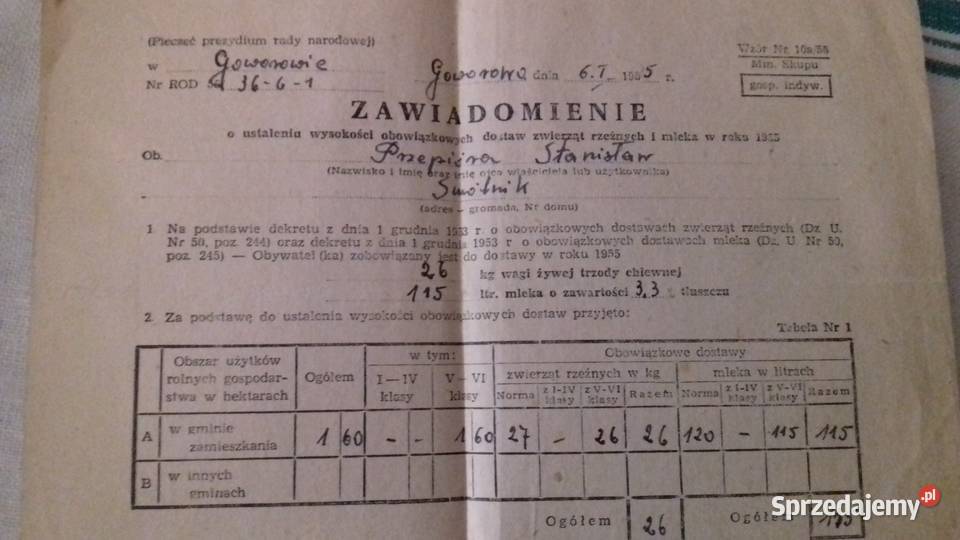 (Pieczęć prezydium rady narodowej)
w Goworowie
Nr ROD 36-6-1
Goworowo dnia 6.I 1955 r.
Wzór Nr 10a/55
Min. Skupu
gosp. indyw.
ZAWIADOMIENIE
o ustaleniu wysokości obowiązkowych dostaw zwierząt rzeźnych i mleka w roku 1955
Ob. Przepióra Stanisław
(Nazwisko i imię oraz imię ojca właściciela lub użytkownika)
(adres – gromada, Nr domu)
1 Na podstawie dekretu z dnia 1 grudnia 1953 r o obowiązkowych dostawach zwierząt rzeźnych (Dz U.
Nr 50, poz. 244) oraz dekretu z dnia 1 grudnia 1953 r o obowiązkowych dostawach mleka (Dz. U. Nr 50,
poz. 245) — Obywatel (ka) zobowiązany jest do dostawy w roku 1955
26 kg wagi żywej trzody chlewnej
115 ltr. mleka o zawartości 3,3 tłuszczu
2 Za podstawę do ustalenia wysokości obowiązkowych dostaw przyjęto:
Tabela Nr 1
Obszar użytków rolnych gospodarstwa w hektarach Ogółem w tym: I—IV klasy V—VI klasy Obowiązkowe dostawy
zwierząt rzeźnych w kg mleka w litrach
Norma z I-IV klasy z V-VI klasy Razem Norma z I-IV klasy z V-VI klasy Razem
A w gminie zamieszkania 1 60 - - 1 60 27 - 26 26 120 - 115 115
B w innych gminach
Ogółem 26 Ogółem 115
Sprzedajemy.pl